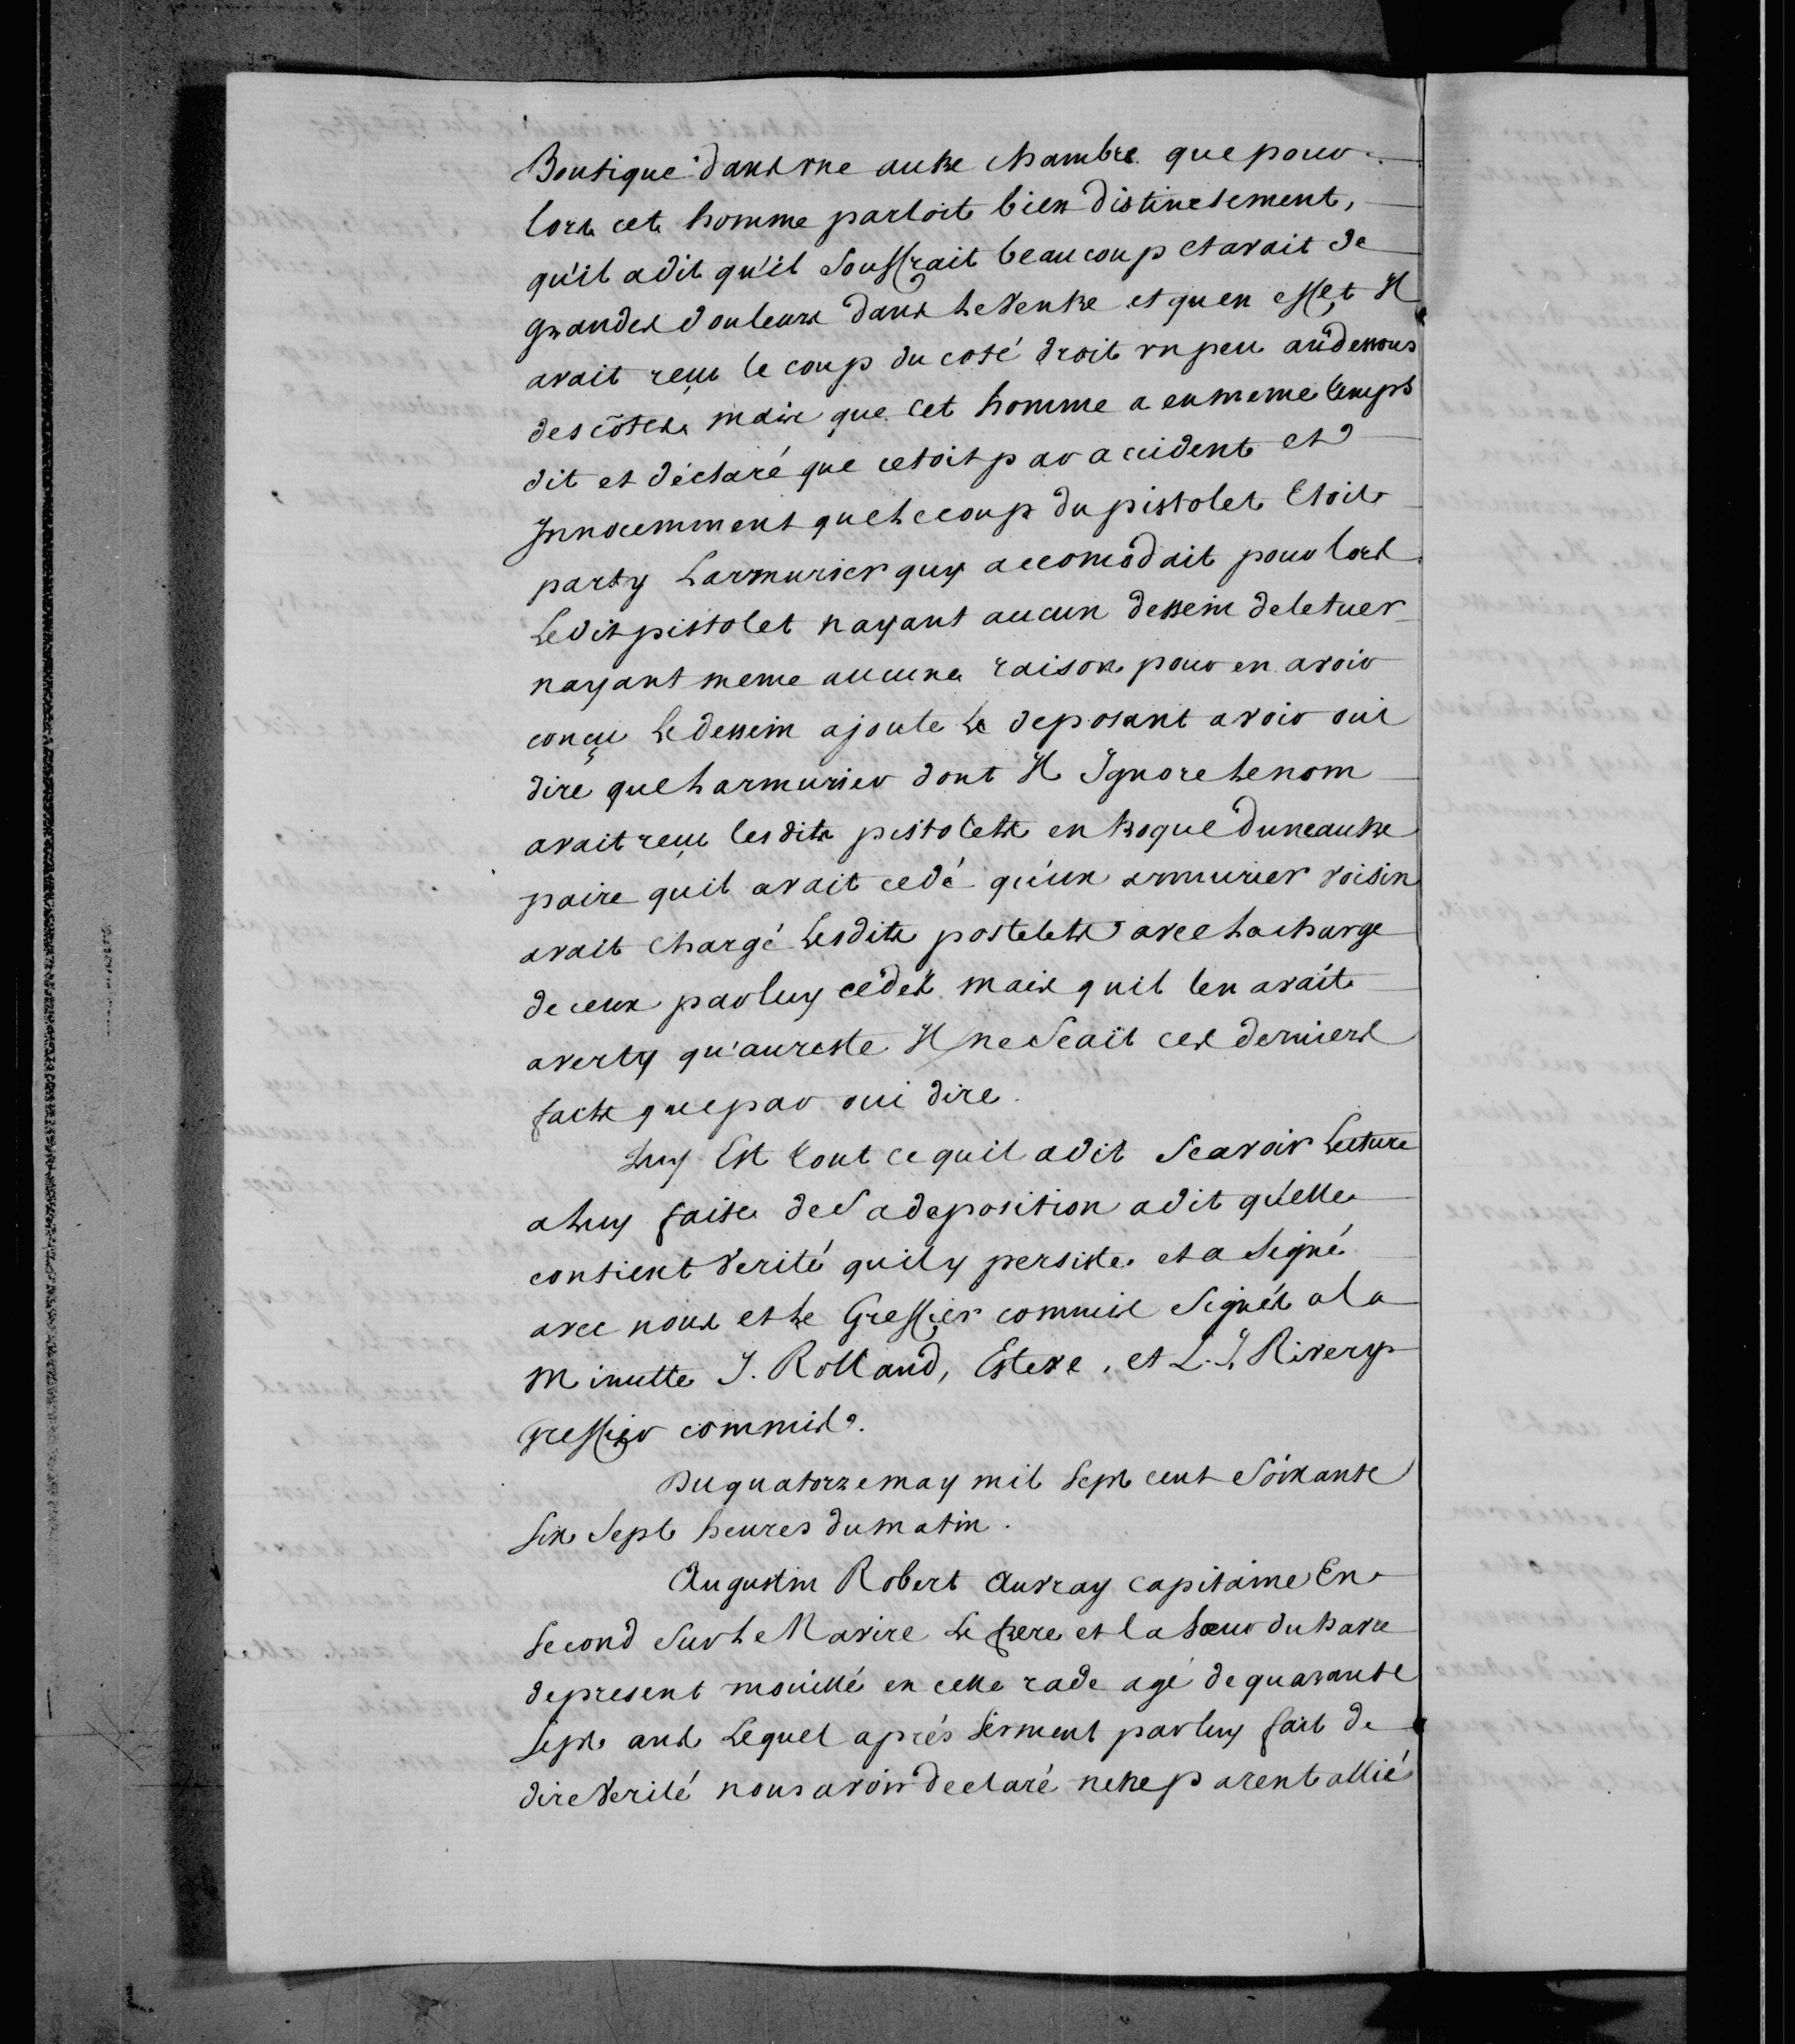 Boutique dans une autre chambre que pour
lors cet homme parloit bien distinctement,
qu'il a dit qu'il souffrait beaucoup et avait de
grandes douleurs dans le ventre et qu en effet Il
avait reçu le coup du coté droit un peu au dessous
des côtes, mais que cet homme a en meme temps
dit et déclaré que cetoit par accident et
Innocemment que le coup du pistolet Etoit
party Larmurier quy accomodait pour lors
Ledit pistolet nayant aucun dessein de le tuer
nayant meme aucune raison pour en avoir
conçu Le dessein ajoute Le deposant avoir oui
dire que larmurier dont Il Ignore le nom
avait reçu lesdits pistolets en troque dune autre
paire quil avait cedé qu'un armurier voisin
avait chargé Lesdits postelets avec la charge
de ceux par luy cedés mais quil len avait
averty qu'au reste Il ne Scait ces derniers
faits que par oui dire.
Quy Est tout ce quil a dit Scavoir Lecture
a luy faite de Sa deposition a dit qu'elle
contient Verité quil y persiste et a Signé
avec nous et le Greffier commis Signés a la
Minutte J. Rolland, Esteve, et L. J. Rivery
greffier commis.
Du quatorze may mil Sept cent Soixante
Six Sept heures du matin.
Augustin Robert Auvray capitaine En
Second Sur le Navire Le frere et la Soeur du havre
de present mouillé en cette rade agé de quarante
Sept ans Lequel aprés Serment par luy fait de
dire Verité nous avoir declaré netre parent allié